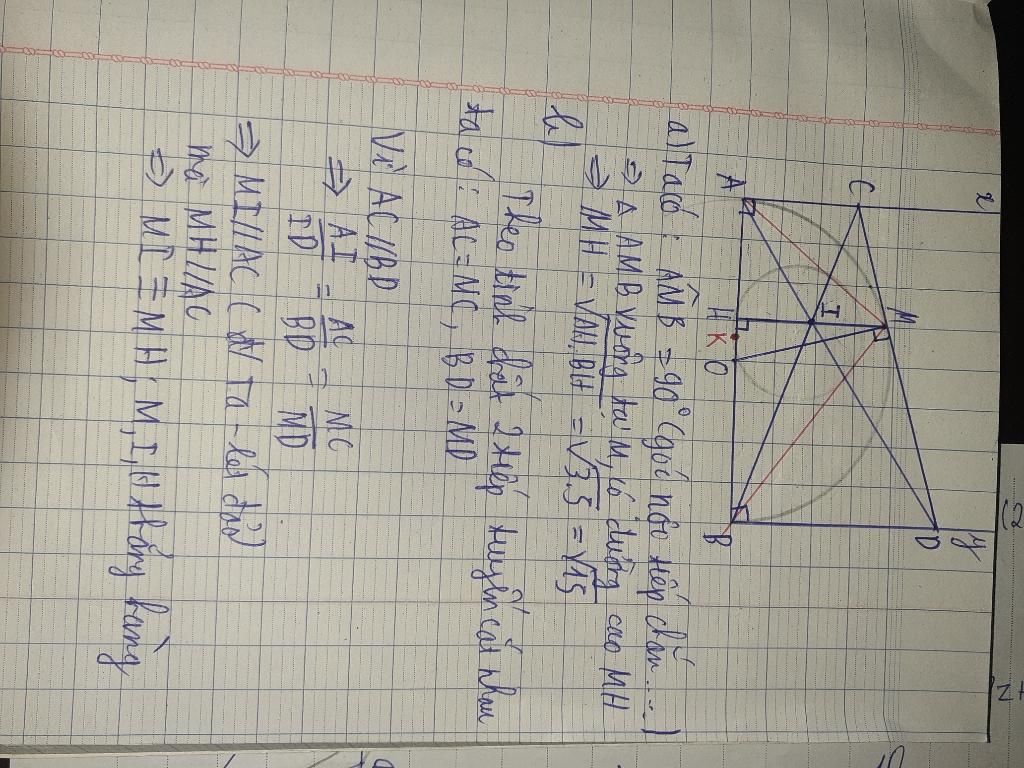 x
y
C
M
D
I
A
H
K
O
B
a) Ta có: AM̂B = 90° (góc nội tiếp chắn ....)
⇒ Δ AMB vuông tại M, có đường cao MH
⇒ MH = √AH.BH = √3.5 = √15
b)
Theo t/c 2 tiếp tuyến cắt nhau
ta có: AC = MC, BD = MD
Vì AC//BD
⇒ AI/ID = AC/BD = MC/MD
⇒ MI//AC (ĐL Ta-lét đảo)
mà MH//AC
⇒ MI ≡ MH; M, I, H thẳng hàng
(2